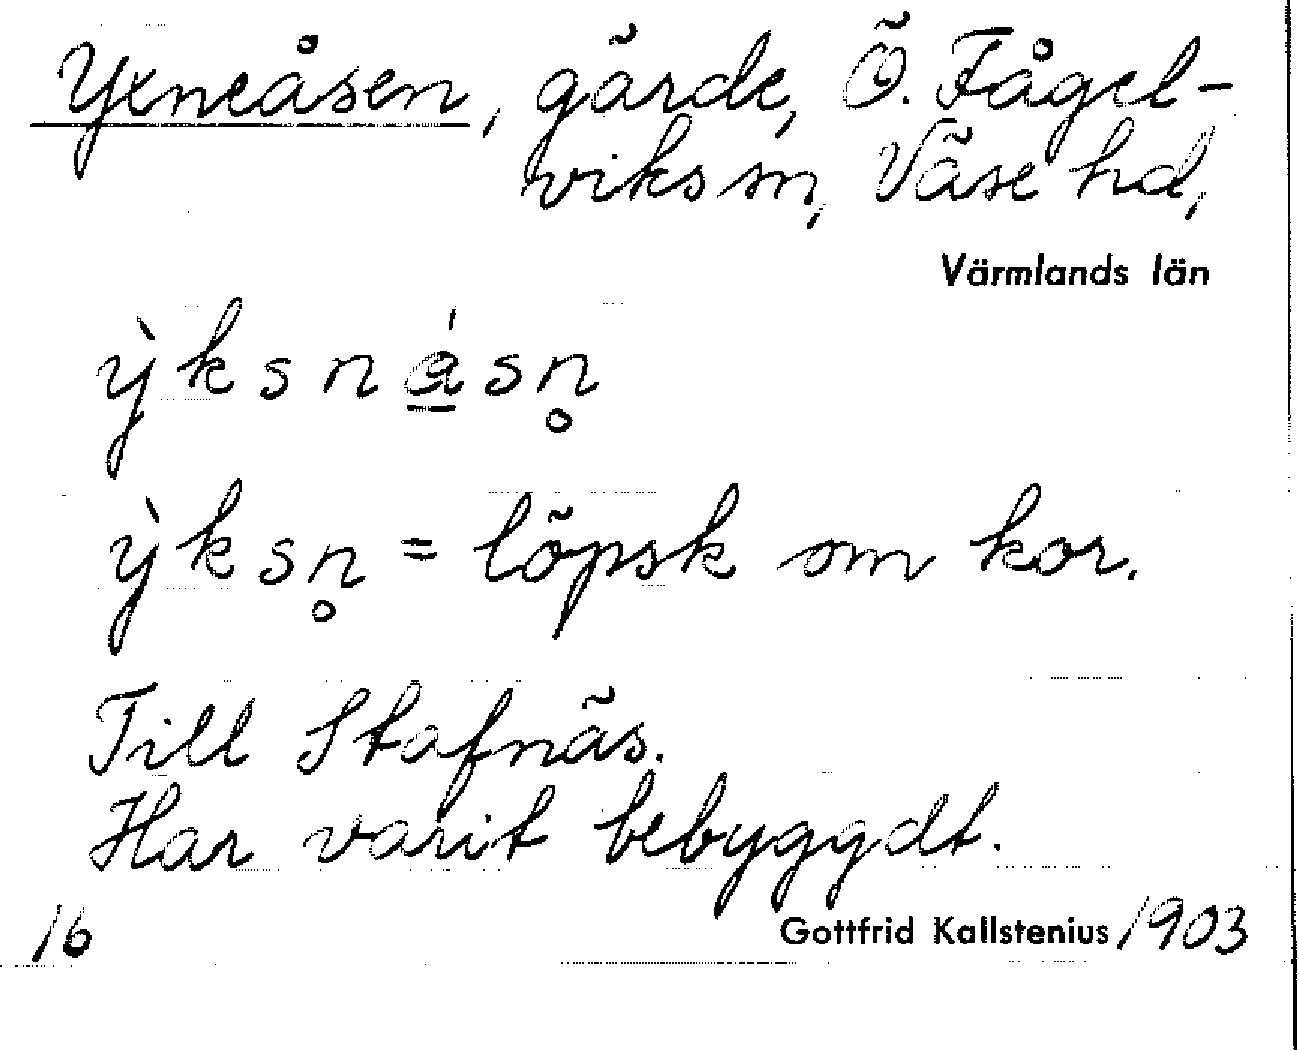 Yxneåsen, gärde, Ö. Fågel-
viks sn, Väse hd,
Värmlands län
ỳksná̱sn̥
ỳksn̥ = löpsk om kor.
Till Stafnäs.
Har varit bebyggdt.
16 Gottfrid Kallstenius 1903